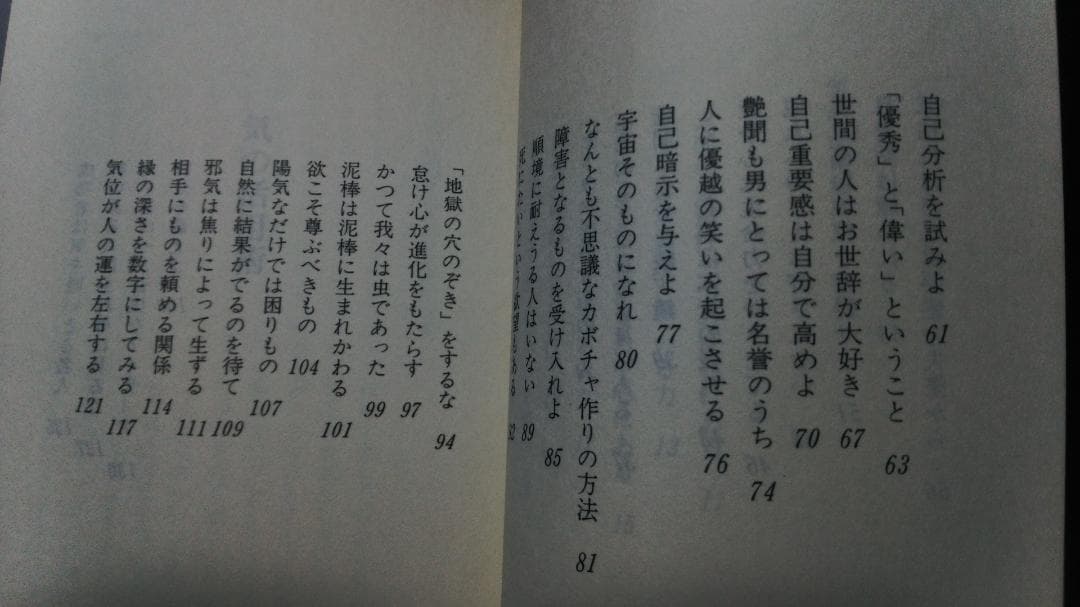 自己分析を試みよ 61
「優秀」と「偉い」ということ 63
世間の人はお世辞が大好き 67
自己重要感は自分で高めよ 70
艶聞も男にとっては名誉のうち 74
人に優越の笑いを起こさせる 76
自己暗示を与えよ 77
宇宙そのものになれ 80
なんとも不思議なカボチャ作りの方法 81
障害となるものを受け入れよ 85
順境に耐えうる人はいない 89
「地獄の穴のぞき」をするな 94
怠け心が進化をもたらす 97
かつて我々は虫であった 99
泥棒は泥棒に生まれかわる 101
欲こそ尊ぶべきもの 104
陽気なだけでは困りもの 107
自然に結果がでるのを待て 109
邪気は焦りによって生ずる 111
相手にものを頼める関係 114
縁の深さを数字にしてみる 117
気位が人の運を左右する 121